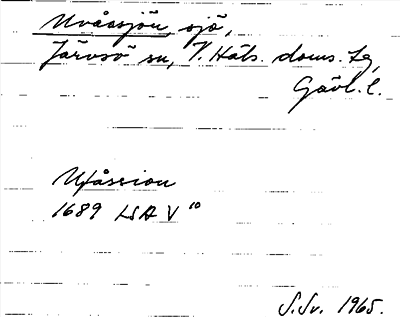 Uvåssjön, sjö,
Järvsö sn, V. Häls. doms. tg,
Gävl. l.
Ufåssion
1689 LSA V 10
S. Sv. 1965.